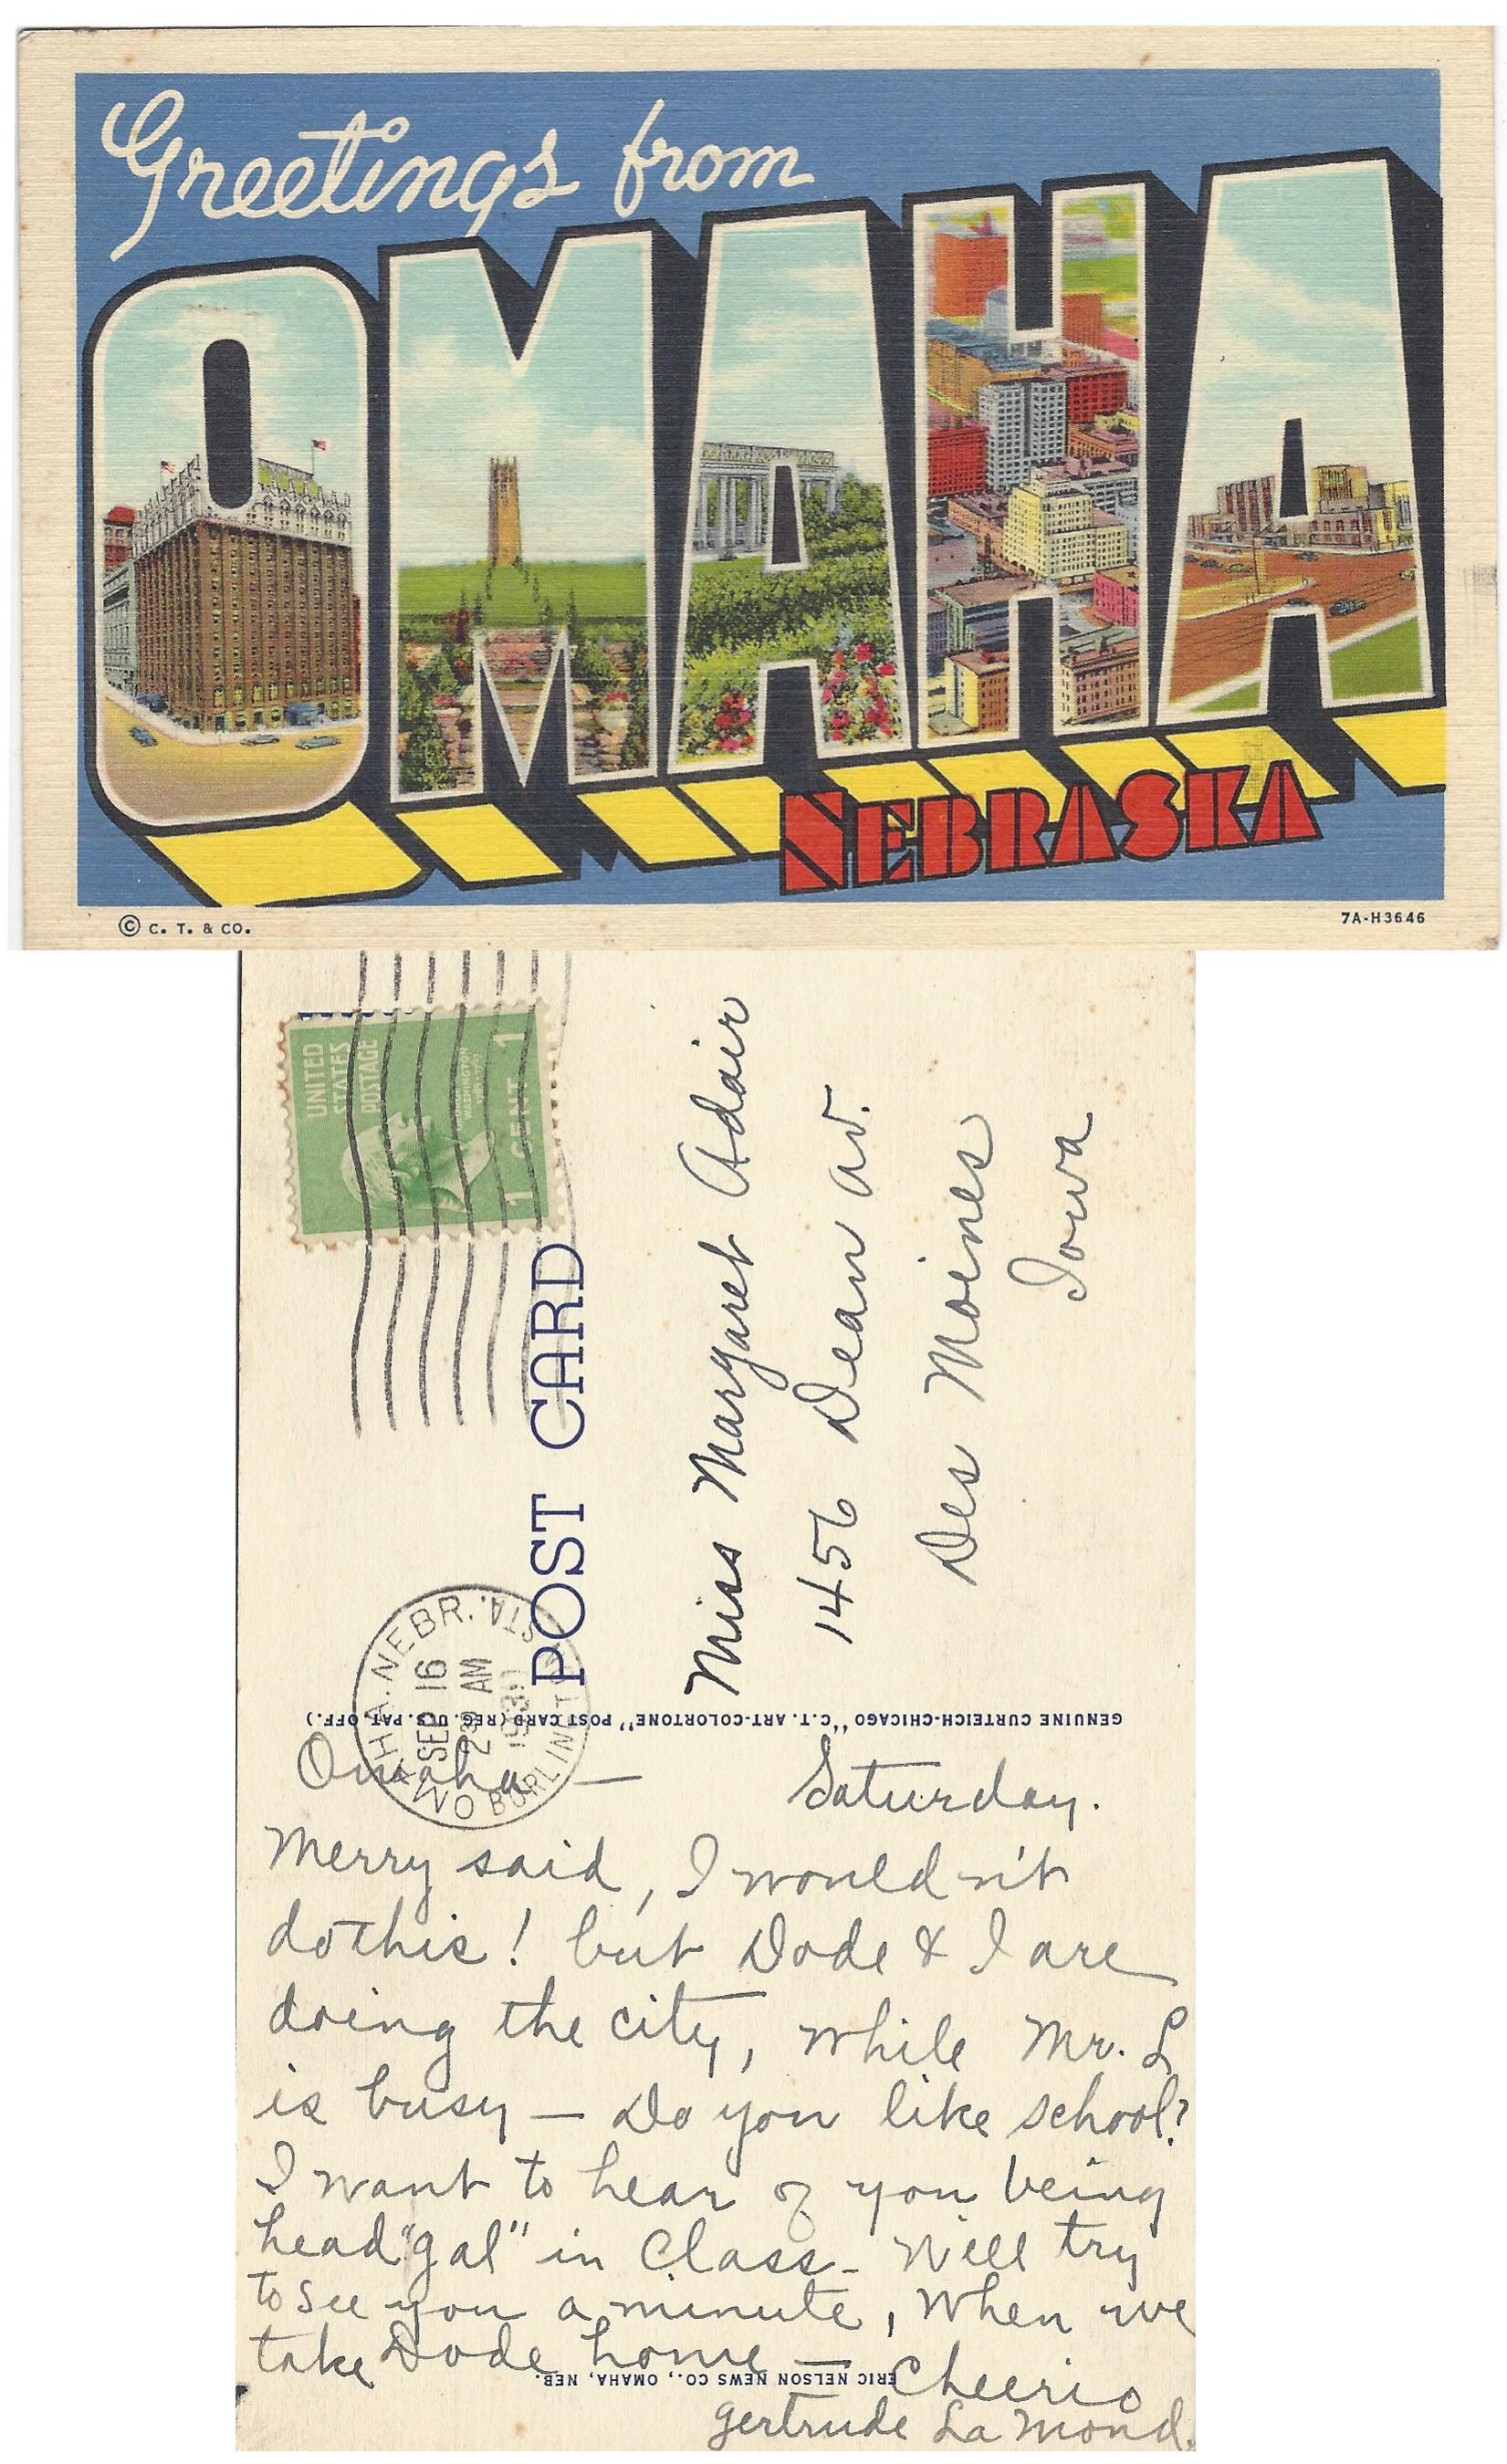 Greetings from
OMAHA
NEBRASKA
© C. T. & CO.
7A-H3646
UNITED
STATES
POSTAGE
WASHINGTON
1 CENT 1
OMAHA. NEBR.
BURLINGTON STA.
SEP 16
AM
POST CARD
Miss Margaret Adair
1456 Dean av.
Des Moines
Iowa
GENUINE CURTEICH-CHICAGO "C.T. ART-COLORTONE" POST CARD (REG. U.S. PAT. OFF.)
Omaha — Saturday.
Merry said, I wouldn't
do this! but Dode & I are
doing the city, while Mr. L
is busy — Do you like school?
I want to hear of you being
head "gal" in Class - Will try
to see you a minute, when we
take Dode home — Cheerio
ERIC NELSON NEWS CO., OMAHA, NEB.
Gertrude La Mond.